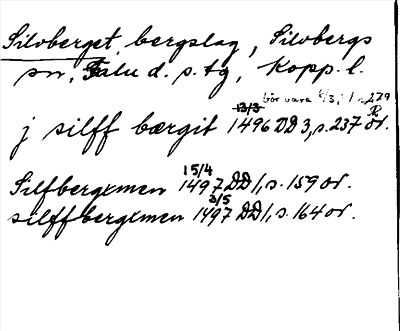 Silvberget, bergslag, Silvbergs
sn, Falu d. s. tg, Kopp. l.
bör vara
13/3
j silff bærgit 1496 DD 3, s. 237 or.
15/4
Silfbergxmen 1497 DD 1, s. 159 or.
3/5
silffbergxmen 1497 DD 1, s. 164 or.